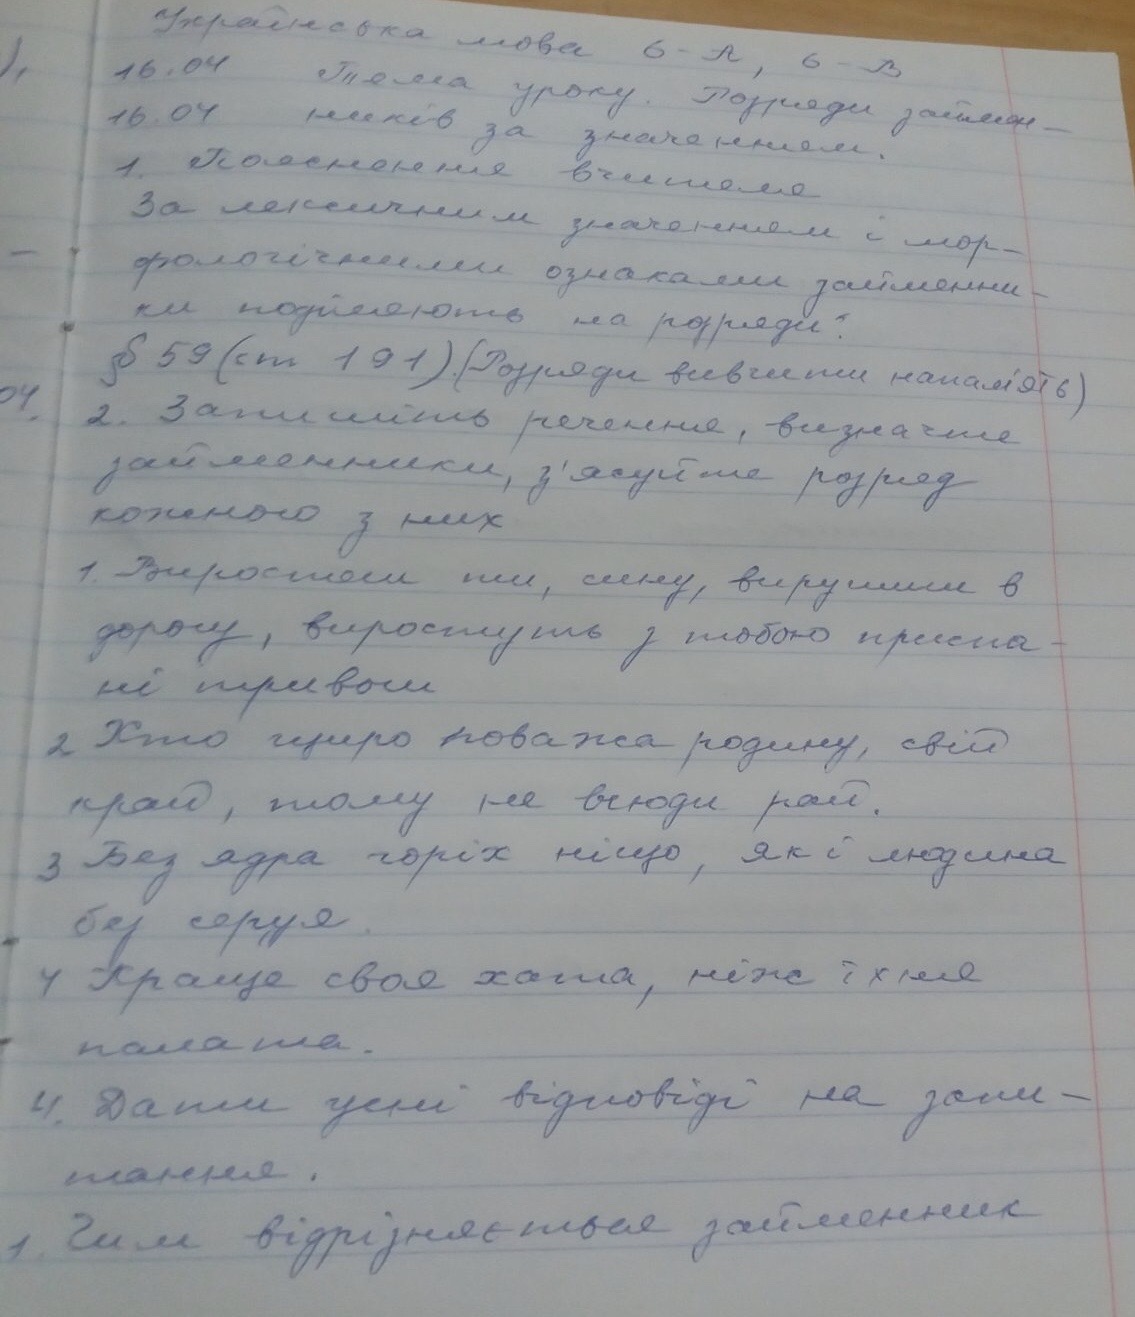 Українська мова 6-А, 6-В
16.04 Тема уроку. Розряди займен-
16.04 ників за значенням.
1. Пояснення вчителя
За лексичним значенням і мор-
фологічними ознаками займенни-
ки поділяють на розряди:
§ 59 (ст 191). (Розряди вивчити напам'ять)
2. Запишіть речення, визначте
займенники, з'ясуйте розряд
кожного з них
1. Виростеш ти, сину, вирушиш в
дорогу, виростуть з тобою приспа-
ні тривоги
2 Хто щиро поважа родину, свій
край, тому не всюди рай.
3 Без ядра горіх ніщо, як і людина
без серця.
4 Краще своя хата, ніж їхня
палата.
4. Дати усні відповіді на запи-
тання.
1. Чим відрізняється займенник
),
04.